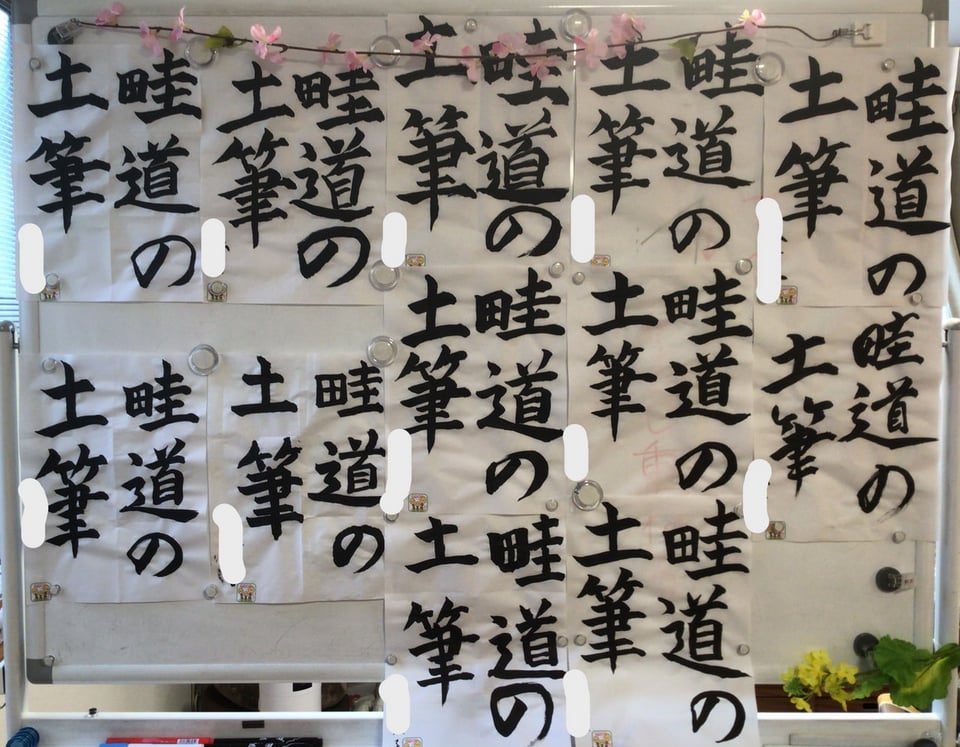 畦道の
土筆
畦道の
土筆
畦道の
土筆
畦道の
土筆
畦道の
土筆
畦道の
土筆
畦道の
土筆
畦道の
土筆
畦道の
土筆
畦道の
土筆
畦道の
土筆
畦道の
土筆